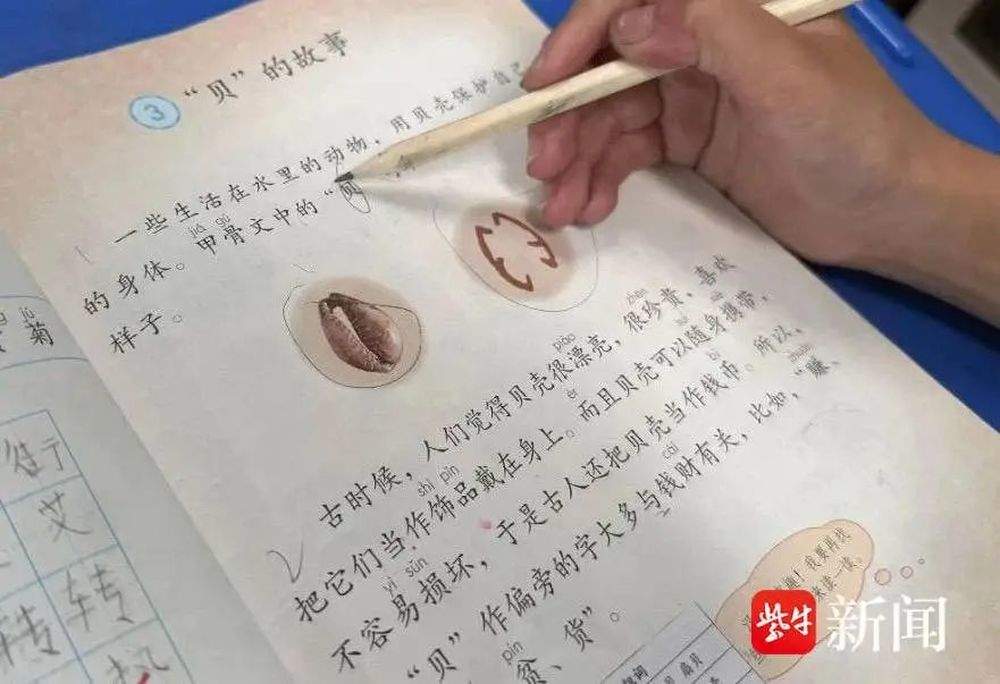 3 “贝”的故事
一些生活在水里的动物，用贝壳保护自己
jiǎ gǔ
的身体。甲骨文中的“
样子。
piào zhēn
古时候，人们觉得贝壳很漂亮，很珍贵，喜欢
shì pǐn ér suí xié
把它们当作饰品戴在身上。而且贝壳可以随身携带，
yì sǔn bì
不容易损坏，于是古人还把贝壳当作钱币。所以，
cái zhuàn
“贝”作偏旁的字大多与钱财有关，比如，“赚、
pín
贫、货”。
我要再找
来读一读。
jú
菊
街
艾
转 转
热
紫牛新闻